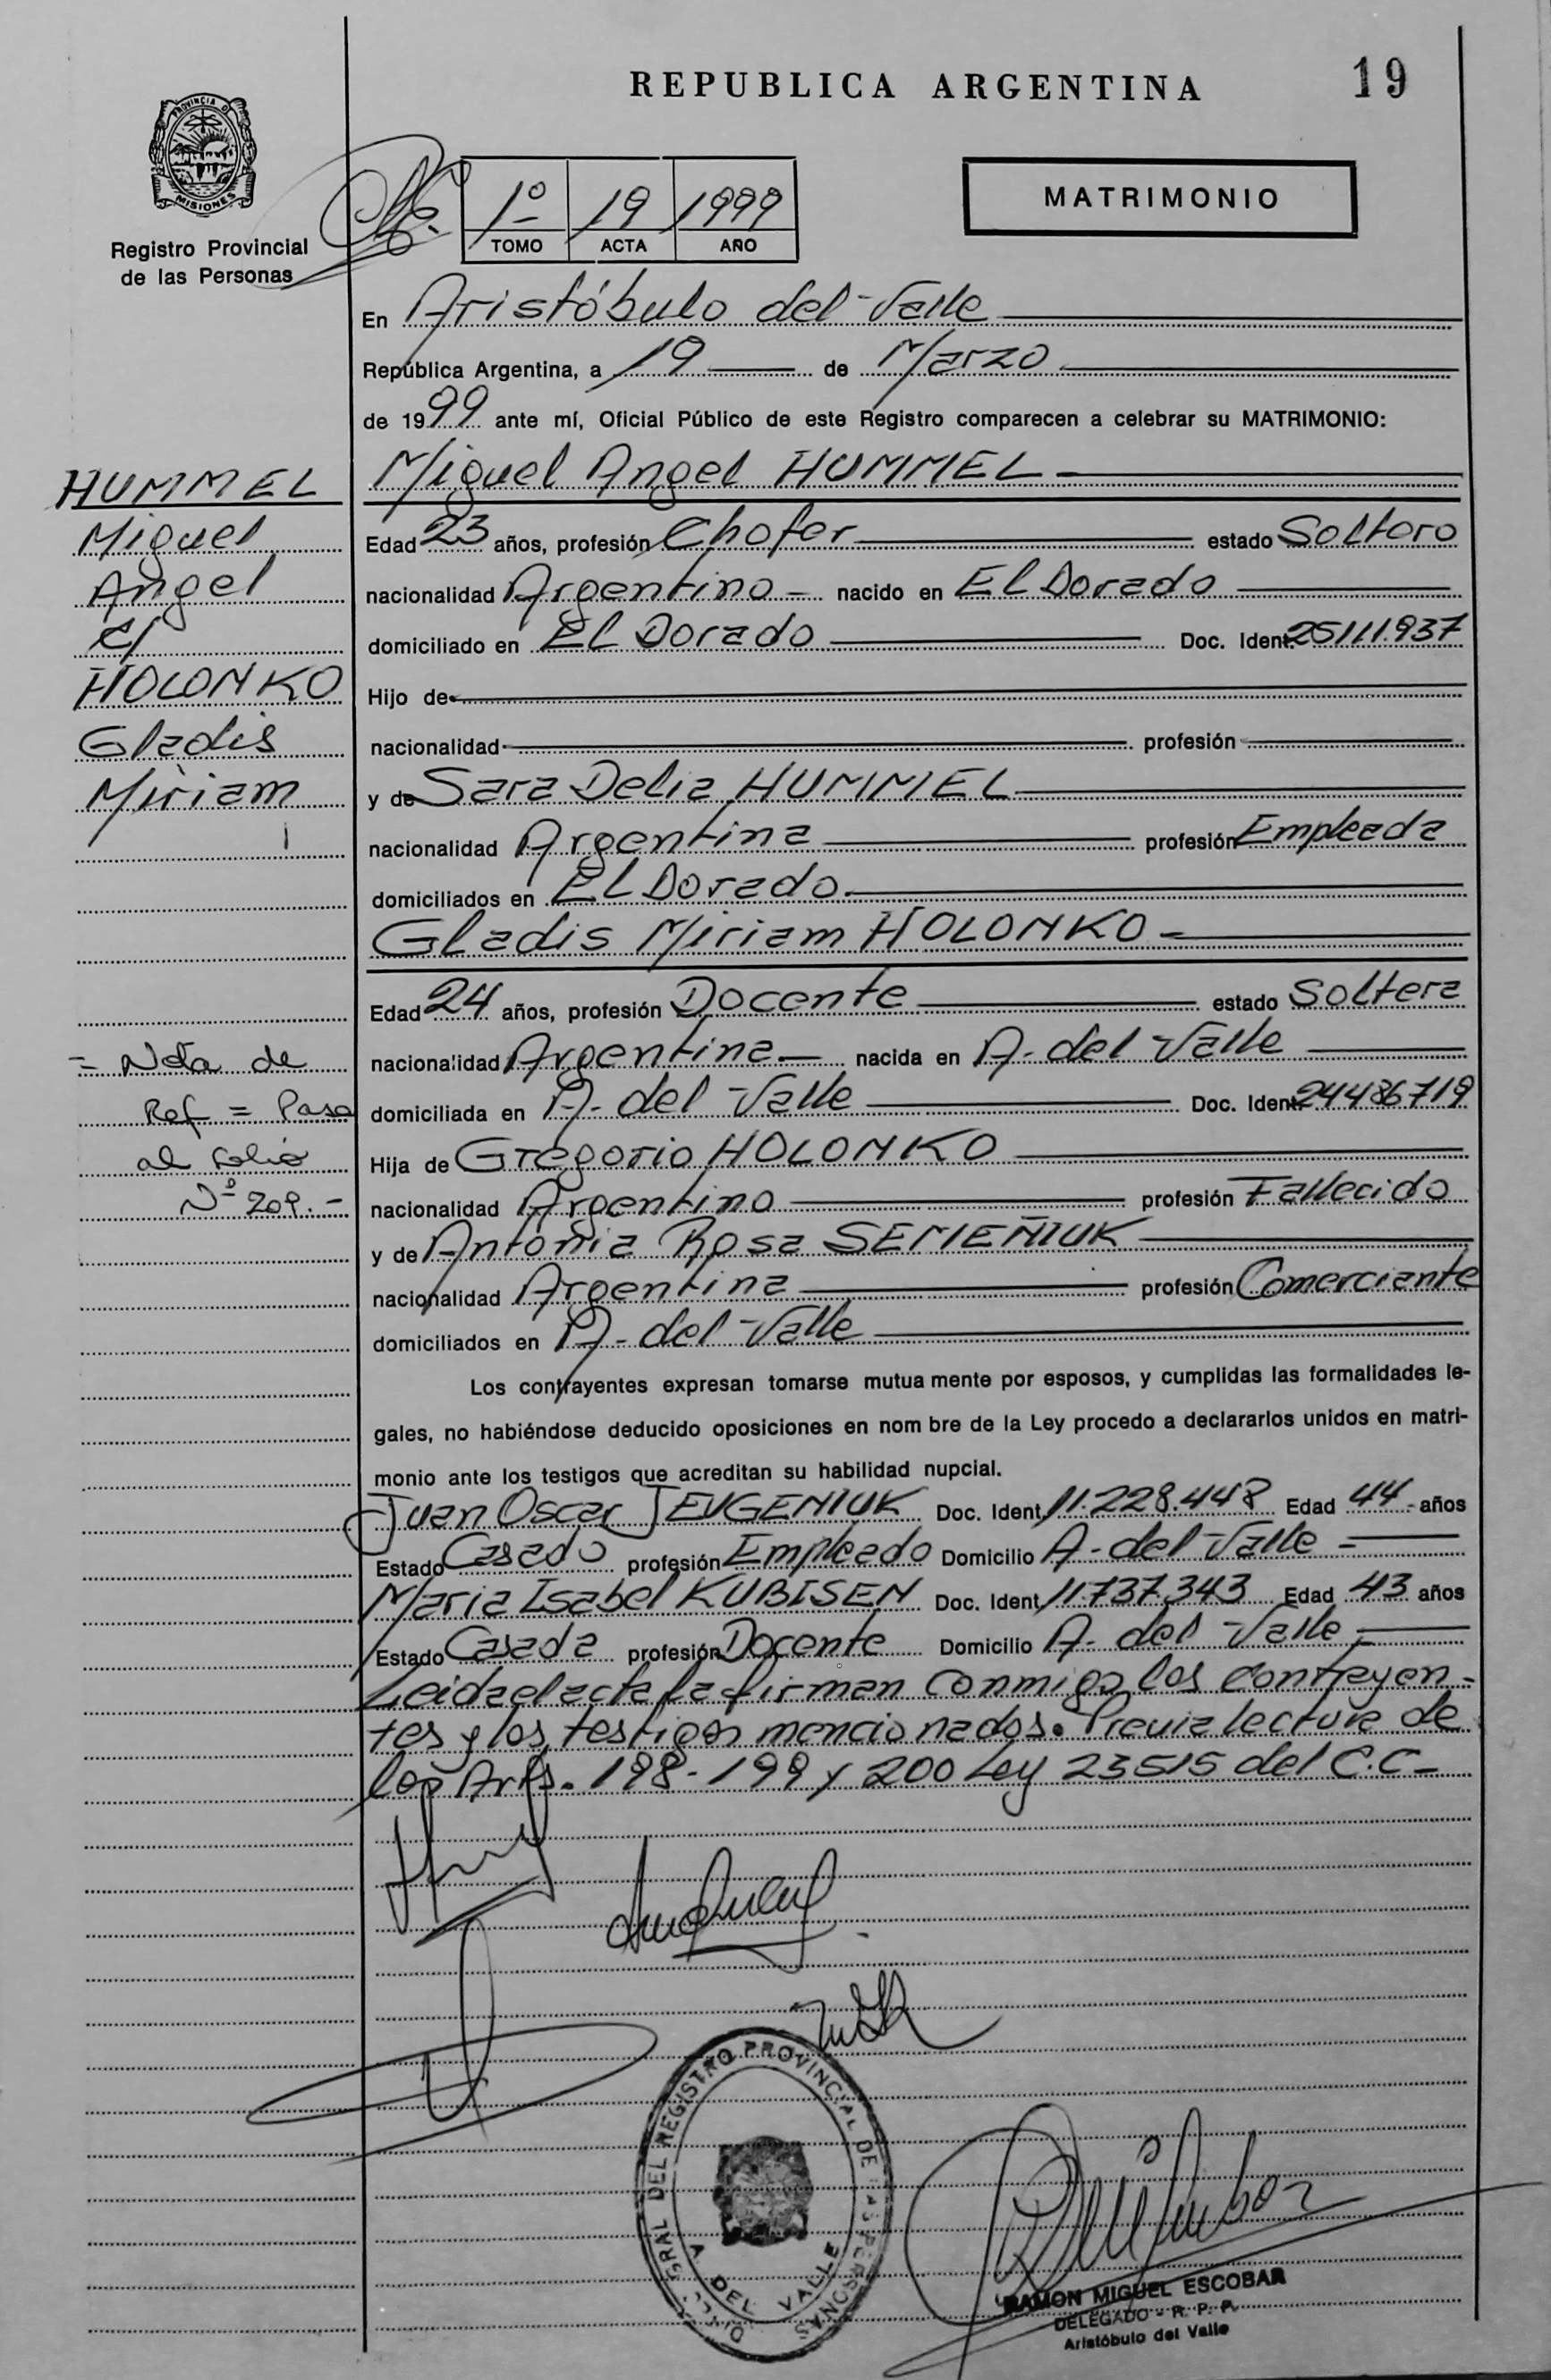 REPUBLICA ARGENTINA
19
PROVINCIA DE
MISIONES
Registro Provincial
de las Personas
1º 19 1999
TOMO ACTA AÑO
MATRIMONIO
En Aristóbulo del Valle
República Argentina, a 19 de Marzo
de 1999 ante mí, Oficial Público de este Registro comparecen a celebrar su MATRIMONIO:
HUMMEL
Miguel
Angel
c/
HOLONKO
Gladis
Miriam
Miguel Angel HUMMEL
Edad 23 años, profesión Chofer estado Soltero
nacionalidad Argentino nacido en El Dorado
domiciliado en El Dorado Doc. Ident. 25111.937
Hijo de
nacionalidad profesión
y de Sara Delia HUMMEL
nacionalidad Argentina profesión Empleada
domiciliados en El Dorado
Gladis Miriam HOLONKO
Edad 24 años, profesión Docente estado Soltera
nacionalidad Argentina nacida en A. del Valle
domiciliada en A. del Valle Doc. Ident. 24486719
Hija de Gregorio HOLONKO
nacionalidad Argentino profesión Fallecido
y de Antonia Rosa SEMEÑIUK
nacionalidad Argentina profesión Comerciante
domiciliados en A. del Valle
= Nota de
Ref = Pasa
al folio
Nº 209.-
Los contrayentes expresan tomarse mutua mente por esposos, y cumplidas las formalidades le-
gales, no habiéndose deducido oposiciones en nom bre de la Ley procedo a declararlos unidos en matri-
monio ante los testigos que acreditan su habilidad nupcial.
Juan Oscar JEUGENIUK Doc. Ident. 11.228.448 Edad 44 años
Estado Casado profesión Empleado Domicilio A. del Valle
Maria Isabel KUBISEN Doc. Ident. 11.737.343 Edad 43 años
Estado Casada profesión Docente Domicilio A. del Valle
Leida el acta la firman conmigo los contrayen-
tes y los testigos mencionados. Previa lectura de
los Arts. 198-199 y 200 Ley 23515 del C.C-
GRAL DEL REGISTRO PROVINCIAL DE LAS PERSONAS
A DEL VALLE
RAMON MIGUEL ESCOBAR
DELEGADO - R. P. P.
Aristóbulo del Valle